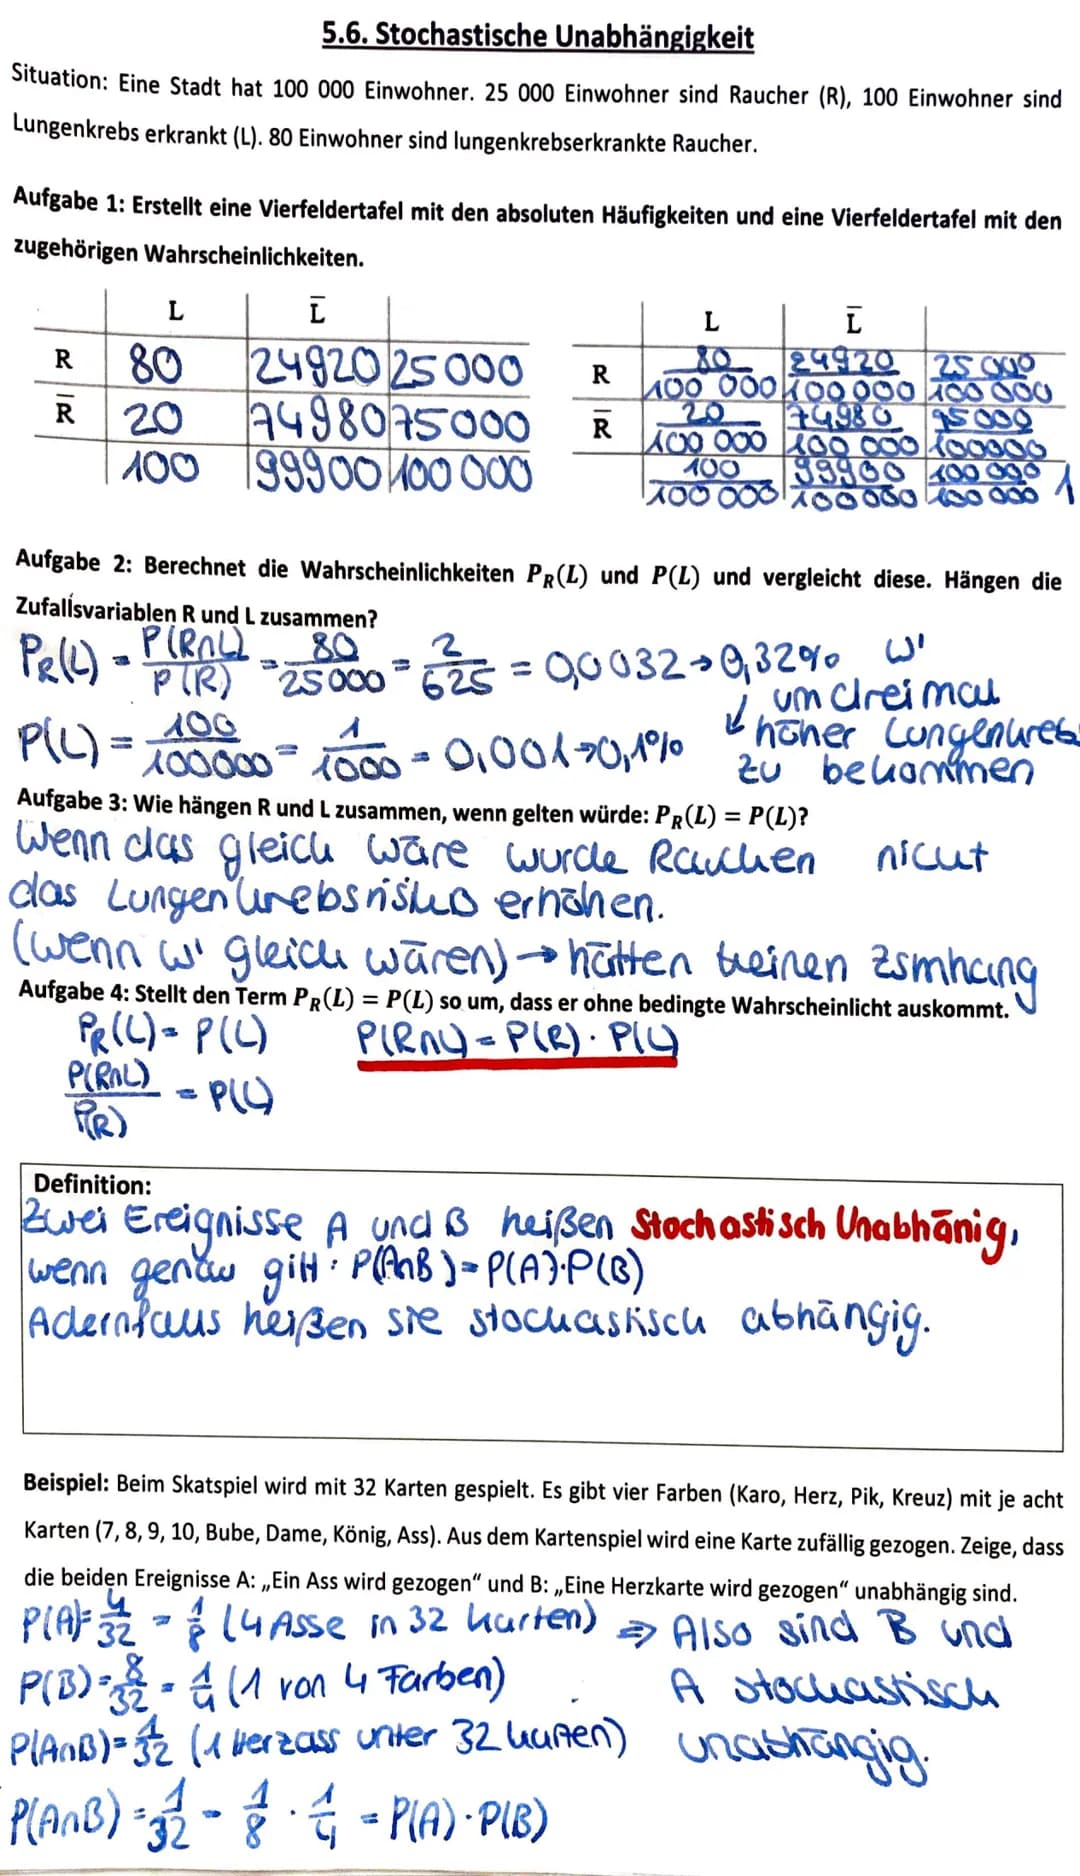 5.6. Stochastische Unabhängigkeit
Situation: Eine Stadt hat 100 000 Einwohner. 25 000 Einwohner sind Raucher (R), 100 Einwohner sind
Lungenkrebs erkrankt (L). 80 Einwohner sind lungenkrebserkrankte Raucher.
Aufgabe 1: Erstellt eine Vierfeldertafel mit den absoluten Häufigkeiten und eine Vierfeldertafel mit den
zugehörigen Wahrscheinlichkeiten.
L L̅
R 80 24920 25000
R̅ 20 74980 75000
100 99900 100 000
L L̅
R 80/100 000 24920/100 000 25 000/100 000
R̅ 20/100 000 74980/100 000 75 000/100000
100/100 000 99900/100 000 100 000/100 000 1
Aufgabe 2: Berechnet die Wahrscheinlichkeiten P_R(L) und P(L) und vergleicht diese. Hängen die
Zufallsvariablen R und L zusammen?
P_R(L) = P(R∩L)/P(R) = 80/25000 = 2/625 = 0,0032 → 0,32% w'
um dreimal
P(L) = 100/100000 = 1/1000 = 0,001 → 0,1% ↓ höher Lungenkrebs
zu bekommen
Aufgabe 3: Wie hängen R und L zusammen, wenn gelten würde: P_R(L) = P(L)?
Wenn das gleich wäre wurde Rauchen nicht
das Lungenkrebsrisiko erhöhen.
(wenn w' gleich wären) → hätten keinen Zsmhang
Aufgabe 4: Stellt den Term P_R(L) = P(L) so um, dass er ohne bedingte Wahrscheinlicht auskommt.
P_R(L) = P(L) P(R∩L) = P(R) · P(L)
P(R∩L)/P(R) = P(L)
Definition:
Zwei Ereignisse A und B heißen Stochastisch Unabhänig,
wenn genau gilt: P(A∩B) = P(A)·P(B)
Adernfalls heißen sie stochastisch abhängig.
Beispiel: Beim Skatspiel wird mit 32 Karten gespielt. Es gibt vier Farben (Karo, Herz, Pik, Kreuz) mit je acht
Karten (7, 8, 9, 10, Bube, Dame, König, Ass). Aus dem Kartenspiel wird eine Karte zufällig gezogen. Zeige, dass
die beiden Ereignisse A: „Ein Ass wird gezogen“ und B: „Eine Herzkarte wird gezogen“ unabhängig sind.
P(A) = 4/32 = 1/8 (4 Asse in 32 Karten) ⇒ Also sind B und
P(B) = 8/32 = 1/4 (1 von 4 Farben) A stochastisch
P(A∩B) = 1/32 (1 Herzass unter 32 Karten) unabhängig.
P(A∩B) = 1/32 = 1/8 · 1/4 = P(A) · P(B)